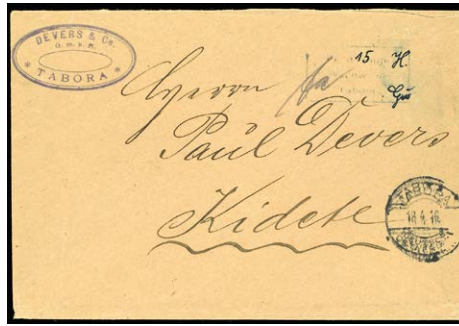 DEVERS & Co.
G. m. b. H.
* TABORA *
15 H
Herrn
Paul Devers
Kidete
TABORA
18.4.16